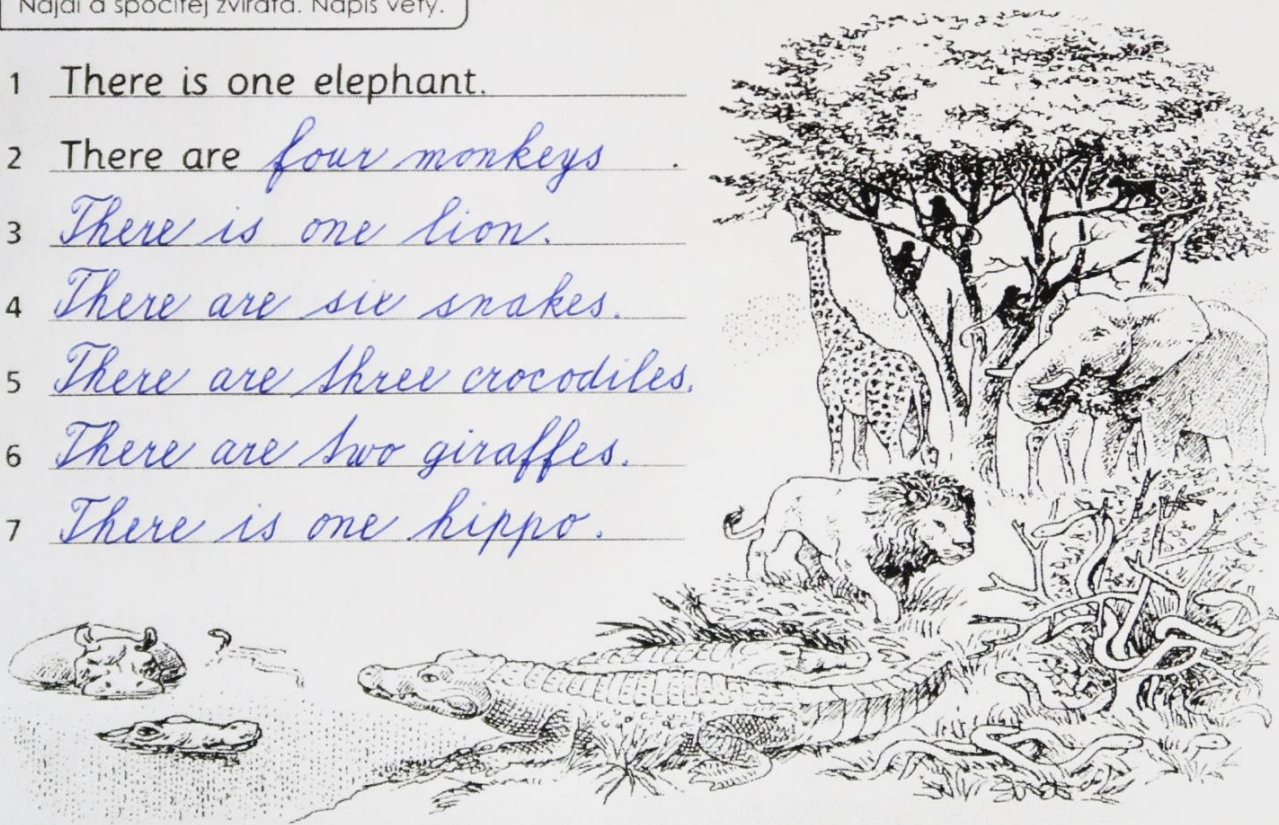 Najdi a spočítej zvířata. Napiš věty.
1 There is one elephant.
2 There are four monkeys .
3 There is one lion.
4 There are six snakes.
5 There are three crocodiles.
6 There are two giraffes.
7 There is one hippo.